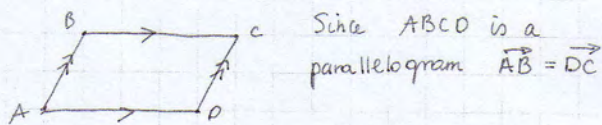 B C Since ABCD is a
parallelogram AB = DC
A D